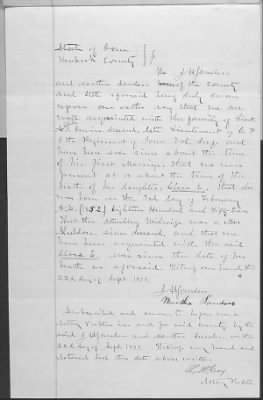 State of Iowa } ss
Keokuk County }
We J H Sanders
and Martha Sanders of the County
and State aforesaid being duly sworn
upon our oaths say that we are
well acquainted with the family of
deceased, late Lieutenant of Co F
the Regiment of Iowa Vol. and
have been since about the time
of his first Marriage that we were
present at or about the time of the
birth of his daughter, Clora E. that she
was born on the 2nd day of February
A.D. (1852) Eighteen Hundred and Fifty two
That the attending Midwife was a Mrs
Sheldon, since deceased, and that we
have been acquainted with the said
Clora E. ever since the date of her
birth as aforesaid. Witness our hands this
22nd day of Sept 1877.
J H Sanders
Martha Sanders
Subscribed and sworn to before me a
Notary Public in and for said county by the
said J H Sanders and Martha Sanders, on this
22nd day of Sept. 1877. Witness my hand and
Notarial Seal the date above written
Notary Public